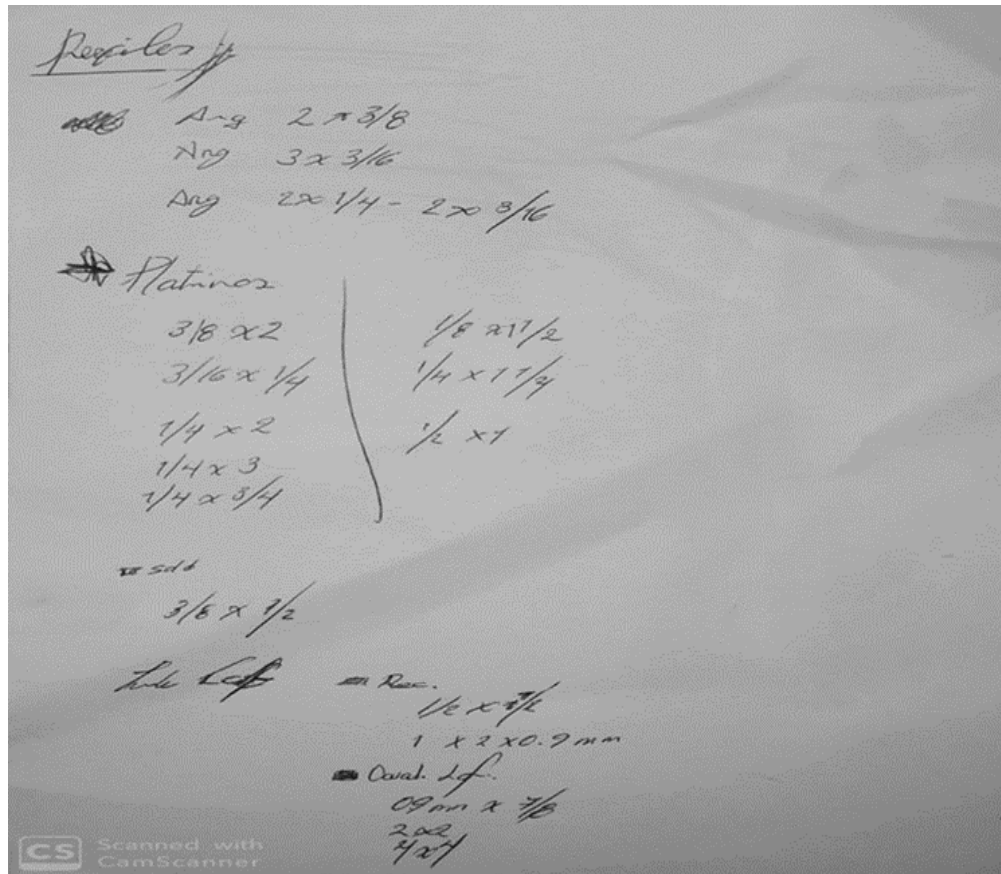 Perfiles
Ang 2 x 3/8
Ang 3 x 3/16
Ang 2x 1/4 - 2x 3/16
Platinas
3/8 x2
3/16 x 1/4
1/4 x 2
1/4 x 3
1/4 x 3/4
1/8 x1 1/2
1/4 x 1 1/2
1/2 x1
3/8 x 1/2
Rec.
1 x 2 x0.9 mm
Cuad. Laf.
09 mm x 7/8
2x2
4x4
CS Scanned with
CamScanner